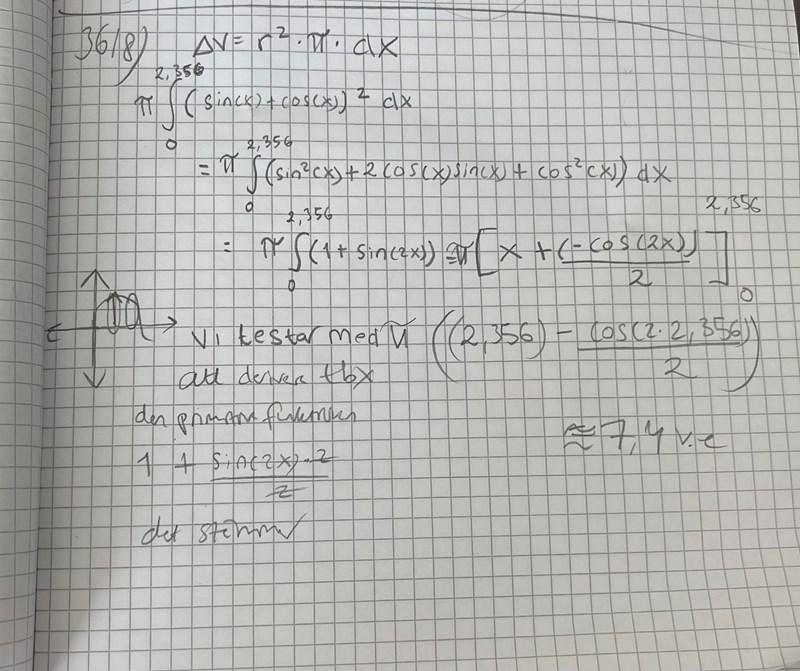 3618) ΔV = r² · π · dx
π ∫₀^2,356 (sin(x) + cos(x))² dx
= π ∫₀^2,356 (sin²(x) + 2 cos(x) sin(x) + cos²(x)) dx
= π ∫₀^2,356 (1 + sin(2x)) = π [x + (-cos(2x))/2]₀^2,356
Vi testar med π ((2,356) - cos(2·2,356)/2)
att derivera tbx
den primitiva funktionen
≈ 7,4 v.e
1 + sin(2x)·2/2
det stämmer